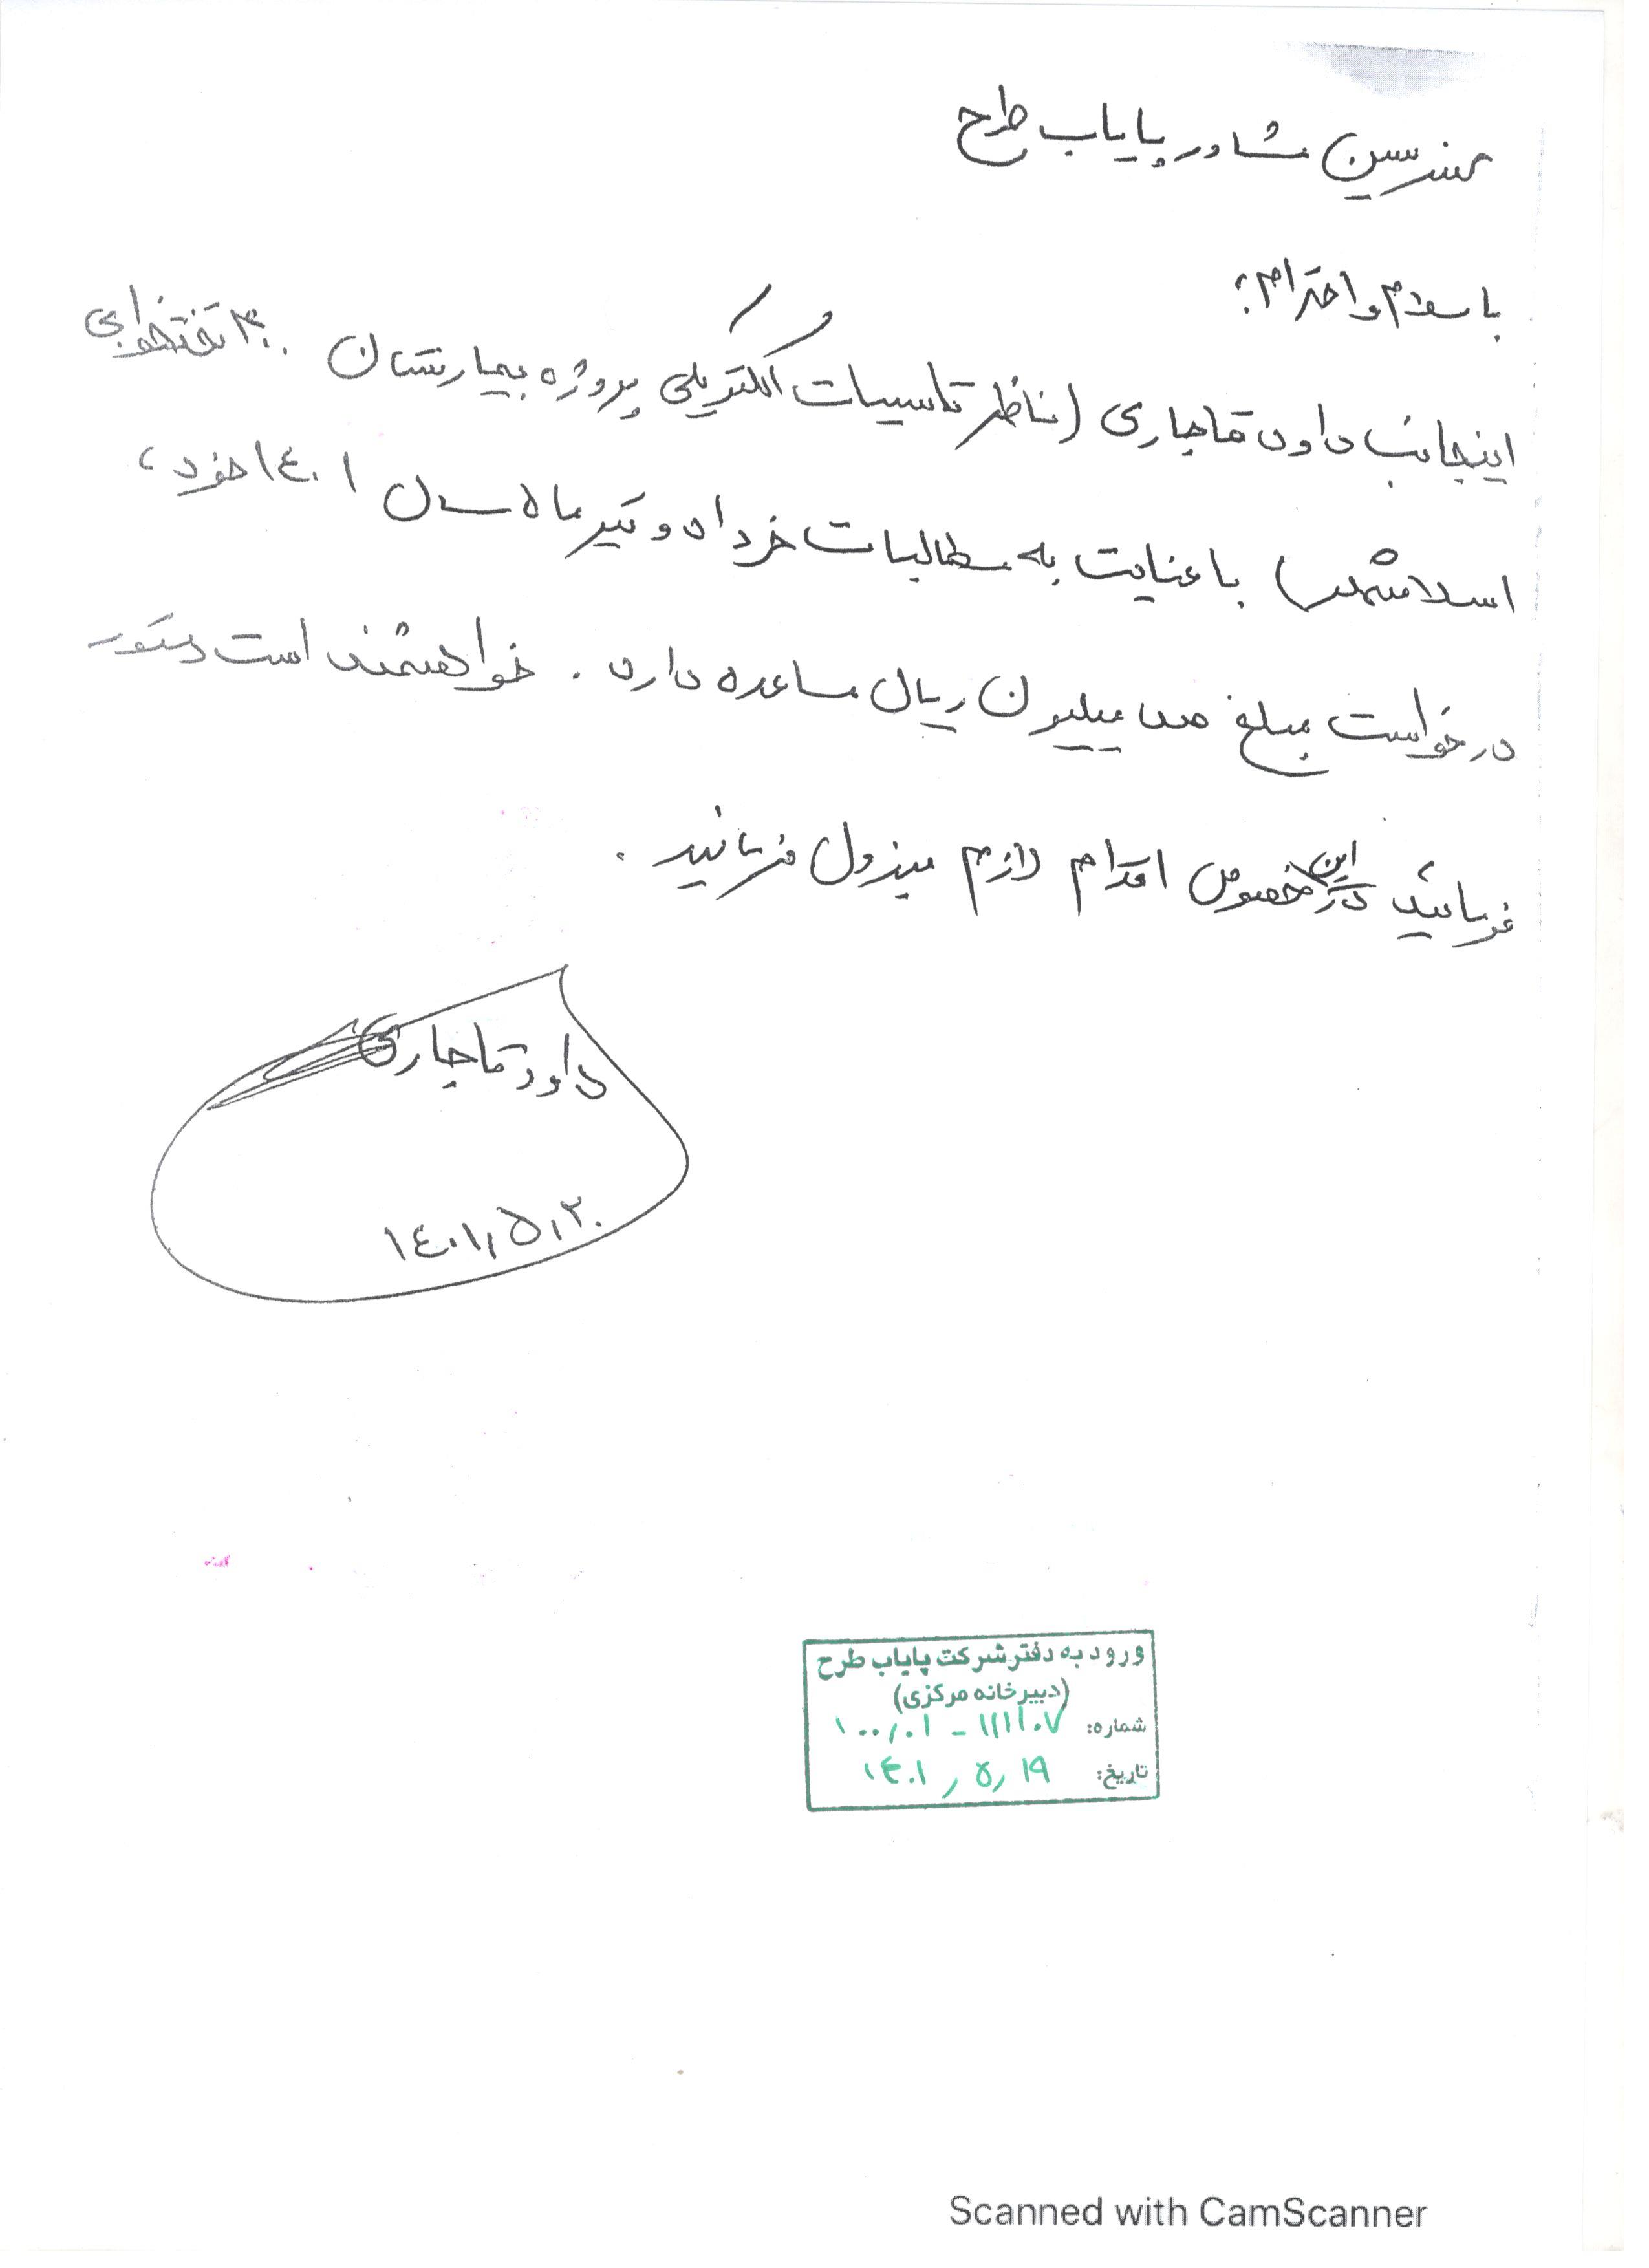 مهندسین مشاور پایاب طرح
با سلام و احترام؛
اینجانب داود قاجاری (ناظر تاسیسات الکتریکی پروژه بیمارستان ۳۰۰ تختخوابی
اسلامشهر) با عنایت به مطالبات خرداد و تیر ماه سال ۱۴۰۱ خود،
درخواست مبلغ صد میلیون ریال مساعده دارد. خواهشمند است دستور
فرمائید در این خصوص اقدام لازم مبذول فرمائید.
داود قاجاری
۱۴۰۱,۵,۲۰
ورود به دفتر شرکت پایاب طرح
(دبیرخانه مرکزی)
شماره: ۱۱۱۱۰۷ - ۱۰۰,۰۱
تاریخ: ۱۴۰۱,۵,۱۹
Scanned with CamScanner